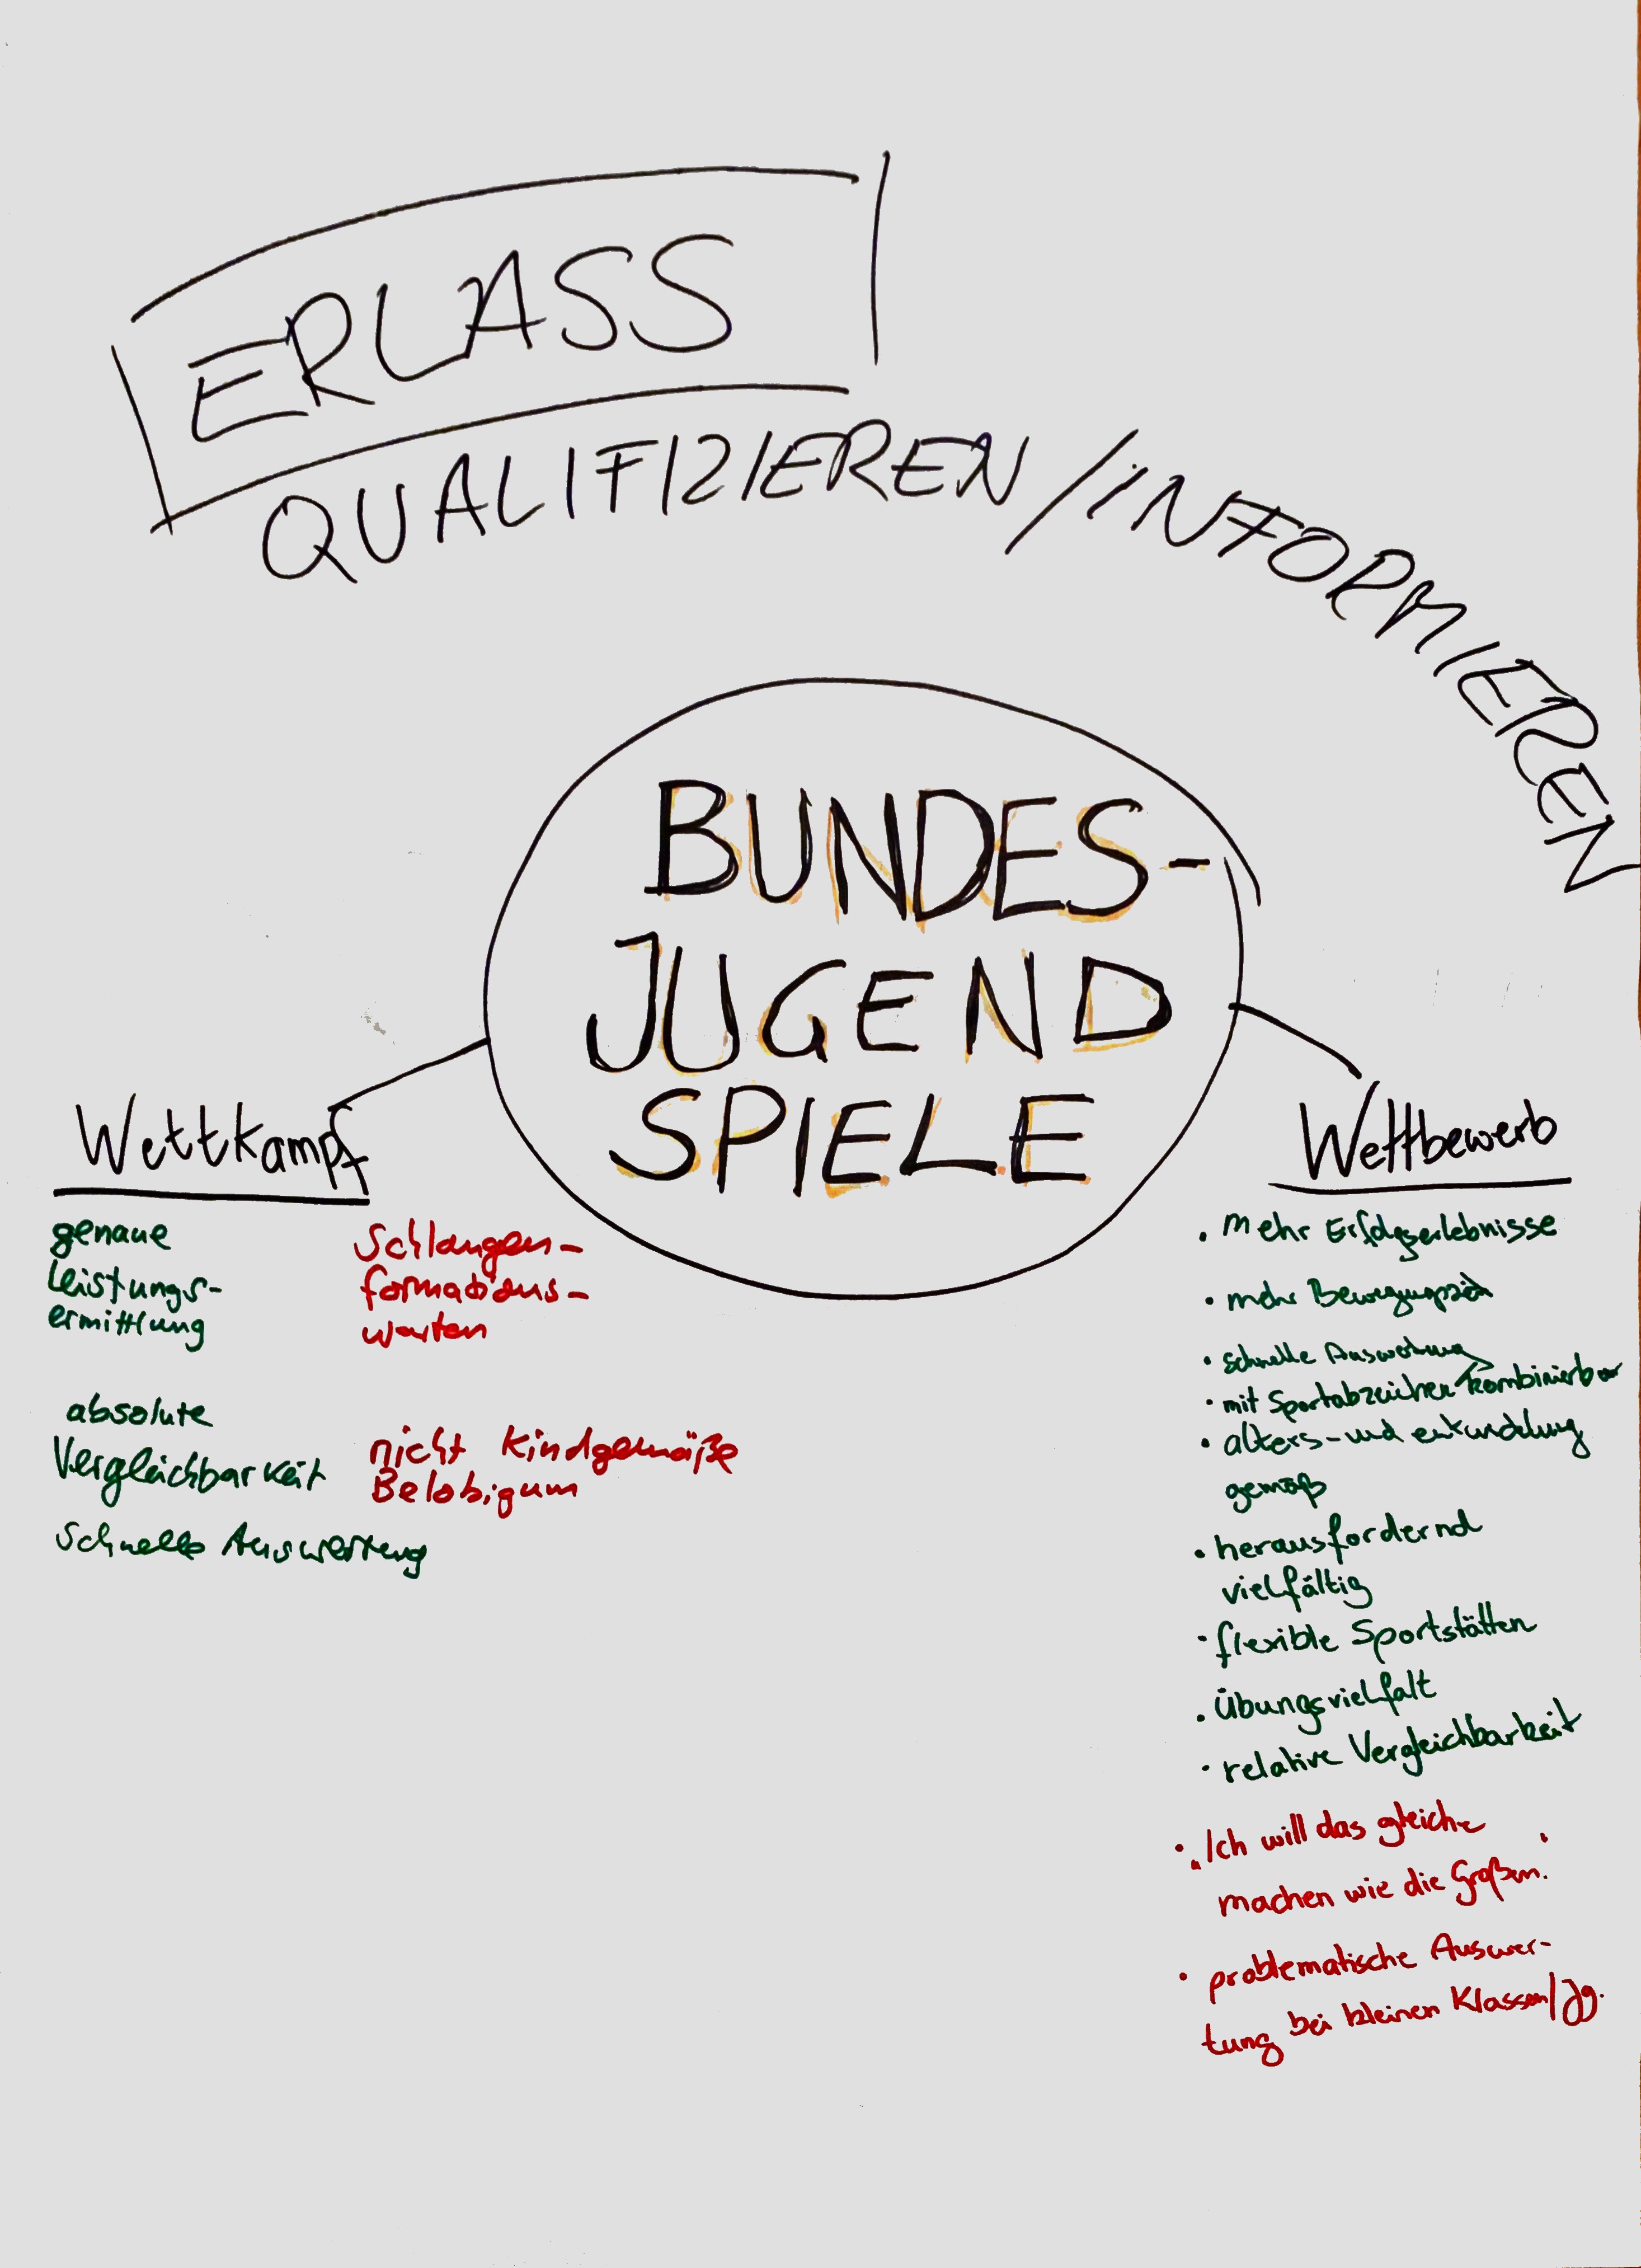 ERLASS
QUALIFIZIEREN/INFORMIEREN
BUNDES-
JUGEND
SPIELE
Wettkampf
genaue
Leistungs-
ermittlung
absolute
Vergleichbarkeit
schnelle Auswertung
Schlangen-
formations-
warten
nicht kindgemäße
Belobigum
Wettbewerb
• mehr Erfolgserlebnisse
• mehr Bewegungszeit
• schnelle Auswertung
• mit Sportabzeichen kombinierbar
• alters- und entwicklung
gemäß
• herausfordernd
vielfältig
• flexible Sportstätten
• Übungsvielfalt
• relative Vergleichbarkeit
• "Ich will das gleiche
machen wie die Großen."
• problematische Auswer-
tung bei kleinen Klassen/Jg.